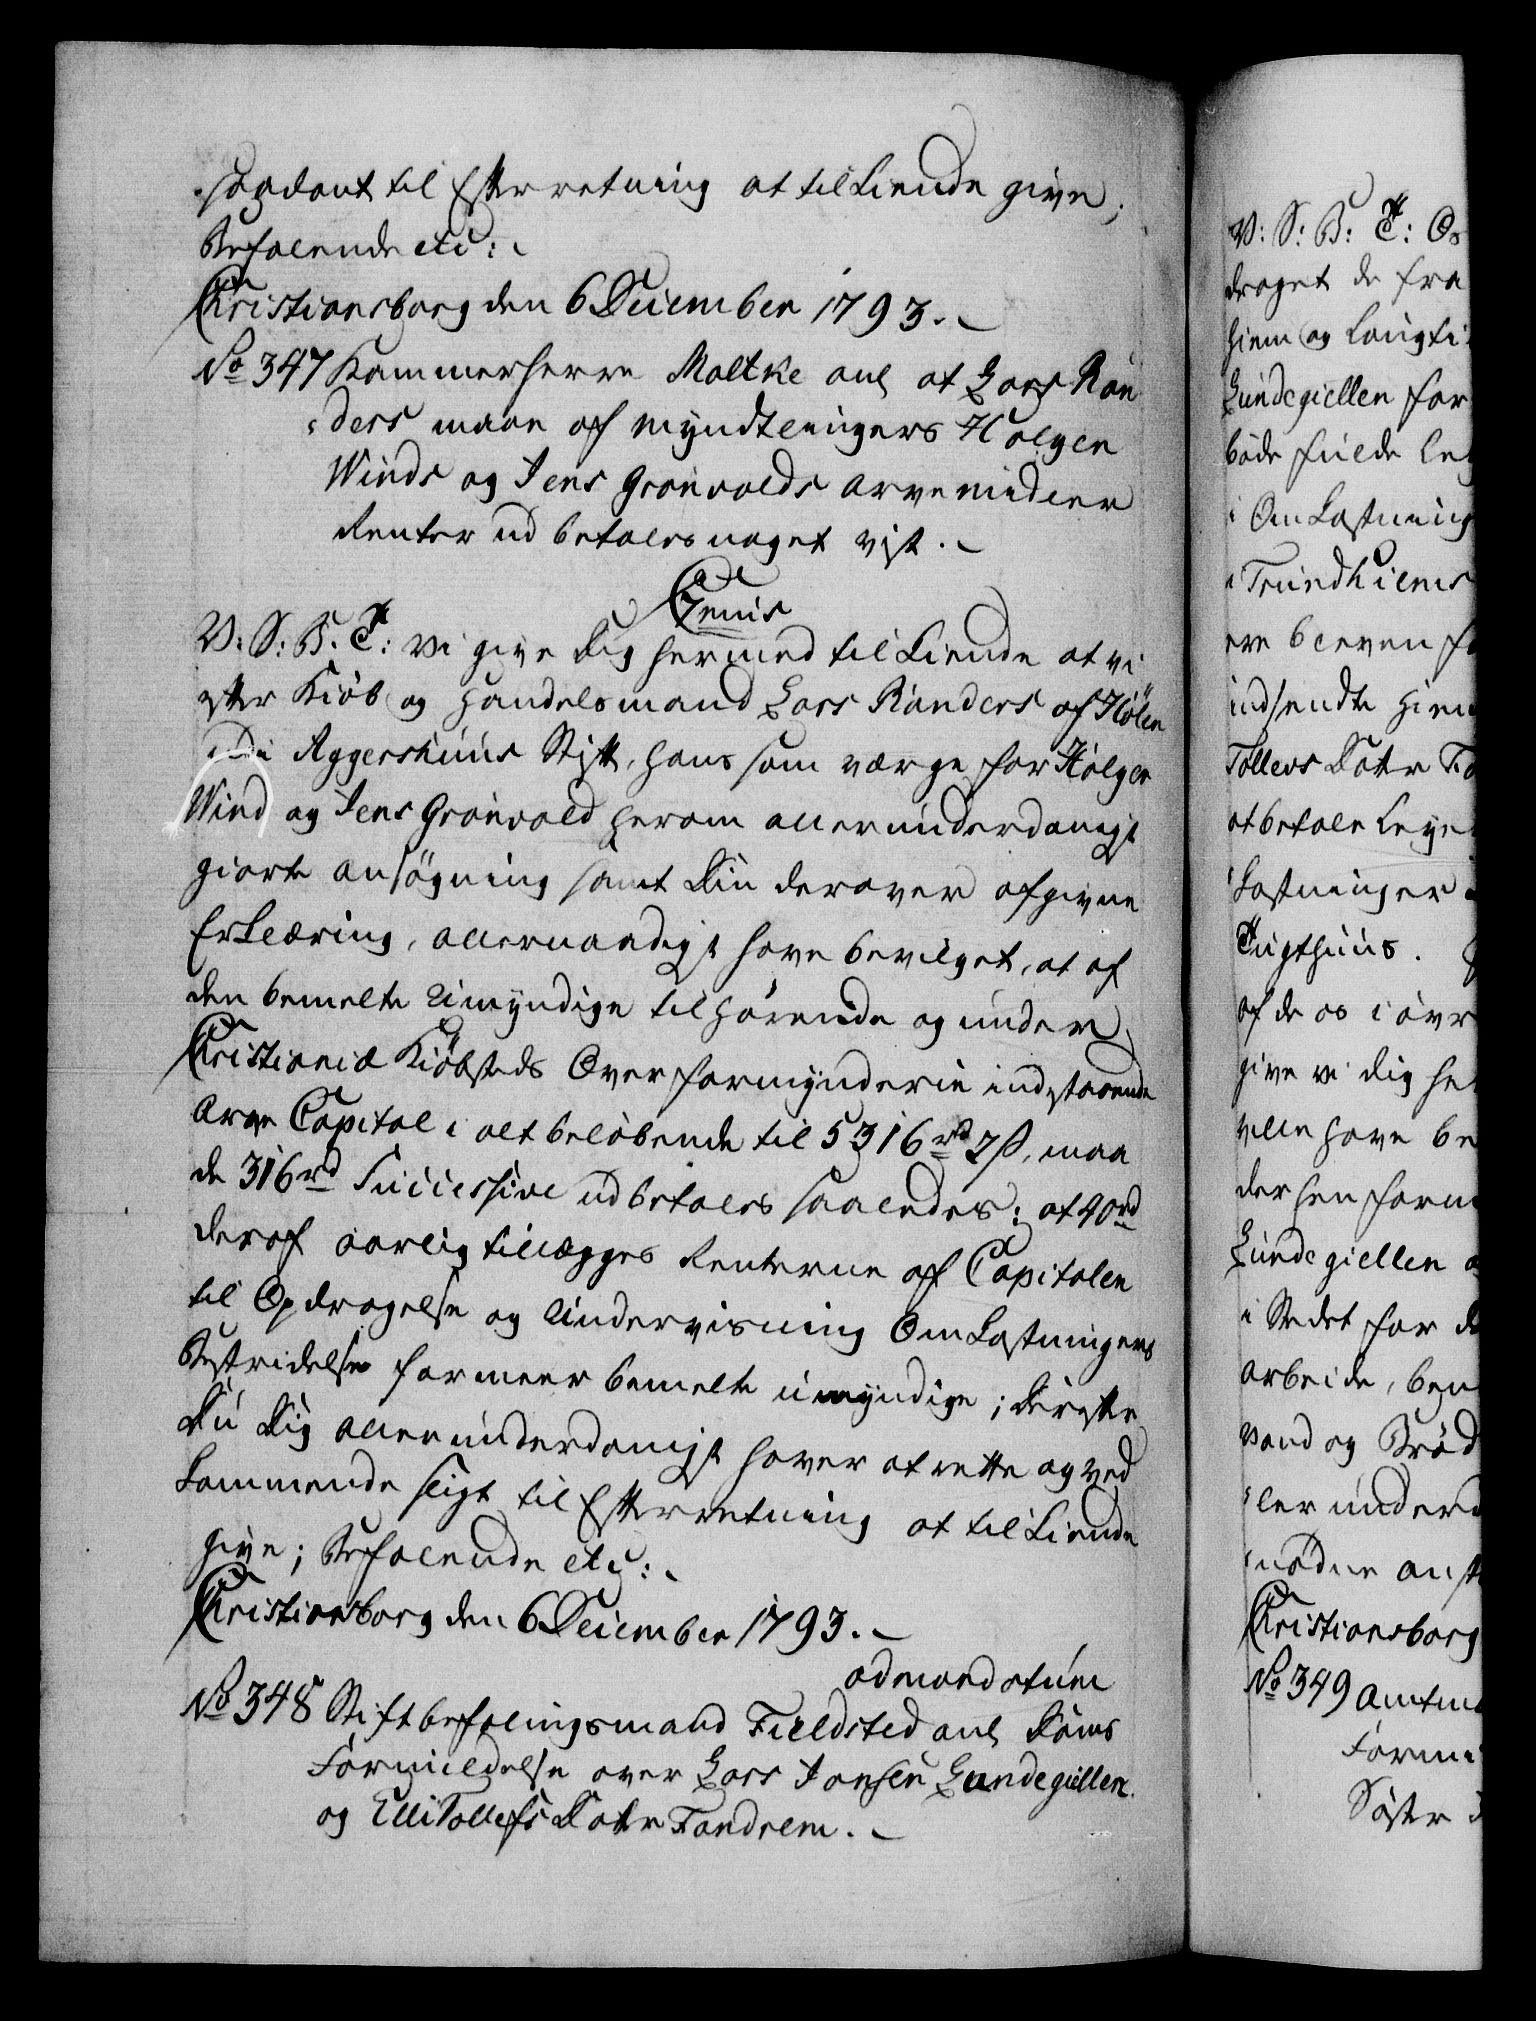 saadant til Efterretning at tilkiende give,
Befalende etc:
Christiansborg den 6 December 1793.
No 347 Kammerherre Moltke anl at Lars Ran
ders maae af Myndtlingers Holger
Winds og Jens Grønvolds Arvemidler
Renter udbetales noget vist.
Gratis
V: S: B: T: Vi give Dig hermed tilkiende at vi
efter Kiøb og Handelsmand Lars Randers af Hølen
udi Aggershuus Stift, hans som værge for Holger
Wind og Jens Grønvold herom allerunderdanigst
giorte ansøgning samt Din derover afgivne
Erklæring, allernaadigst have bevilget, at af
den bemelte Umyndige tilhørende og under
Christiania Kiøbsteds Overformynderie indestaaende
Arve Capital i alt beløbende til 5316 rd 2 s, maa
de 316 rd Successive udbetales saaledes: at 40 rd
deraf aarlig tillægges Renterne af Capitalen
til Opdragelse og Undervisning Omkostningers
Bestridelse for meerbemelte umyndige; Derefter
Du Dig allerunderdanigst haver at rette og ved
kommende sligt til Efterretning at tilkiende
give; Befalende etc:
Christiansborg den 6 December 1793.
ad mandatum
No 348 Stiftbefalingsmand Fieldsted anl Doms
Formildelse over Lars Jonsen Lundegiellen
og Elli Tollefs Datter Fandrem.
V: S: B: T: Os
draget de fra
hiem og langti
Lundegiellen for
både fulde
i Omkostning
Trundhiems
ere bleven
indsendte hiem
Tollevs Datter
at betale
kostninger
Tugthuus.
af de os i øvr
give vi dig her
ville have be
der hen form
Lundegiellen
i Stedet for
arbeide, ben
vand og Brød
ler under
Christiansborg
No 349 Amtm
Formi
Søster